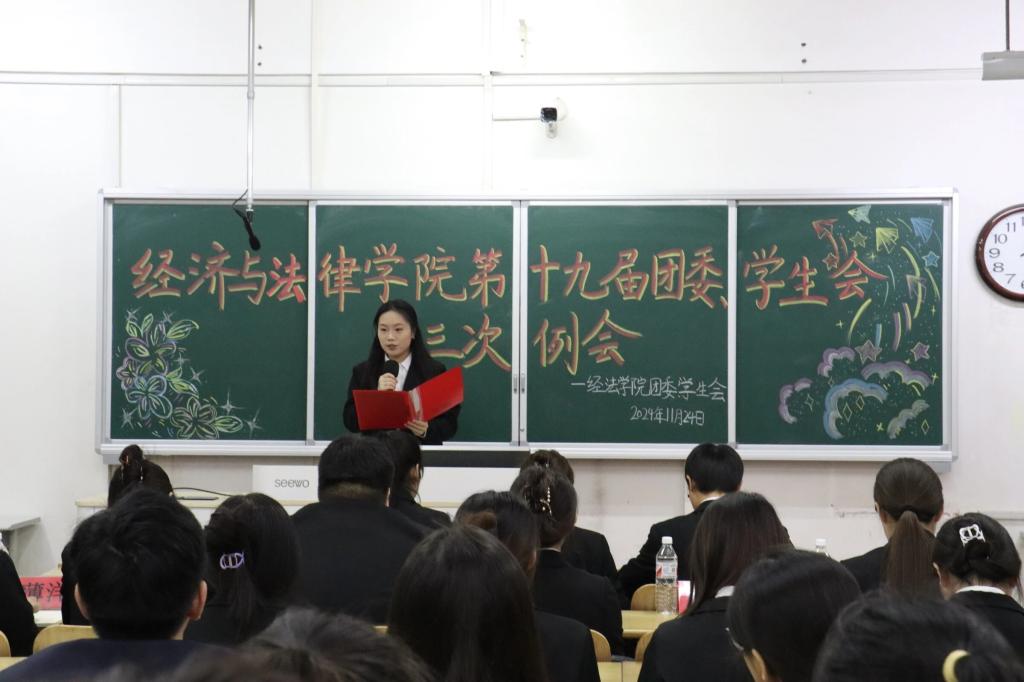 经济与法律学院第十九届团委、学生会
三次例会
一经法学院团委学生会
2024年11月24日
seewo
11
10
9
8
7